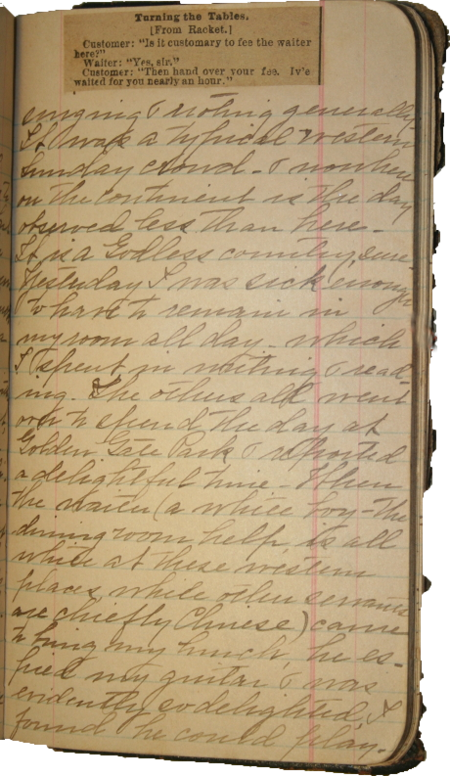 Turning the Tables.
[From Racket.]
Customer: "Is it customary to fee the waiter
here?"
Waiter: "Yes, sir."
Customer: "Then hand over your fee. Iv'e
waited for you nearly an hour."
singing & rioting generally.
It was a typical western
Sunday crowd - & nowhere
on the continent is the day
observed less than here -
It is a Godless country, sure -
Yesterday I was sick enough
to have to remain in
my room all day - which
I spent in writing & read-
ing. The others all went
out to spend the day at
Golden Gate Park & reported
a delightful time - When
the waiter (a white boy - the
dining room help is all
white at these western
places, while other servants
are chiefly Chinese) came
to bring my lunch, he es-
pied my guitar & was
evidently so delighted, I
found he could play -